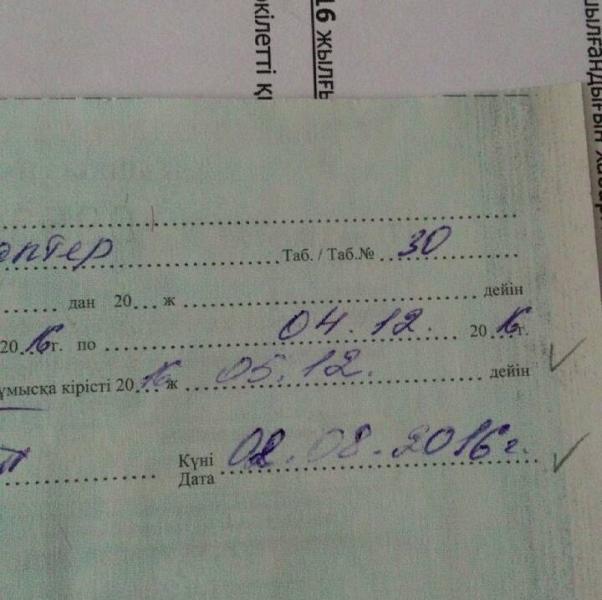 16 жылғы
өкілетті қ
Таб. / Таб.№ 30
дан 20 ж дейін
2016г. по 04.12. 2016г.
ұмысқа кірісті 2016ж 05.12. дейін
Күні
Дата 02.08.2016г.